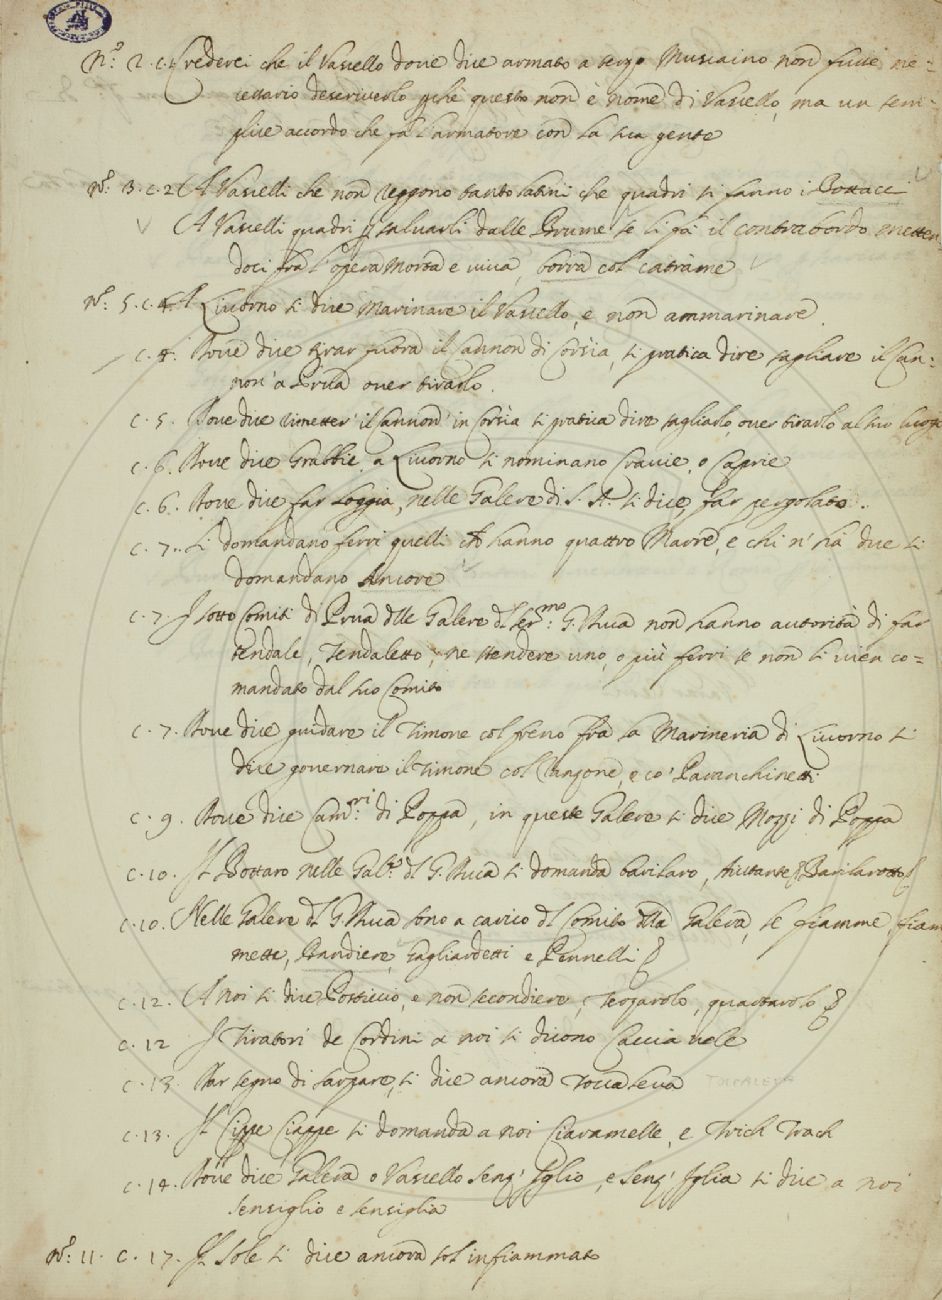 N.º 2. c. Crederei che il Vascello dove dice armato a terzo Muscaino non fusse ne=
cessario descriverlo p̱chè questo non è nome di Vascello, ma un sem=
plice accordo che fà l'armatore con la sua gente
N.º 3. c. 2 A Vascelli che non reggono tanto latini che quadri si fanno i Bottacci
A Vascelli quadri p̱ salvarli dalle Brume se li fà il contrabordo metten
doci frà l'opera Morta e viva, borra col catrame
N.º 5. c. 4. A Livorno si dice Marinare il Vascello, e non ammarinare.
c. 4. Dove dice tirar fuora il Cannon di Corsia, si pratica dire tagliare il Can=
non' a Prua over tirarlo.
c. 5. Dove dice rimetter' il Cannon' in Corsia si pratica dire tagliarlo, over tirarlo al suo luogo
c. 6. Dove dice Grabbie, a Livorno si nominano Cravie, o Caprie
c. 6. Dove dice far loggia, nelle Galere di S. A. si dice, far pergolato.
c. 7. Si domandano ferri quelli ch' hanno quattro Marre, e chi n' hà due si
domandano Ancore
c. 7. I sotto Comiti di Prua dlle Galere dl Ser.mo G. Duca non hanno autorità di far
tendale, Tendaletto, ne stendere uno, o più ferri se non li vien co=
mandato dal suo Comito
c. 7. Dove dice guidare il Timone col freno frà la Marineria di Livorno si
dice governare il Timone col l'angone, e co' Paranchinetti
c. 9. Dove dice Cam.ri di Poppa, in queste Galere si dice Mozzi di Poppa
c. 10. Il Bottaro nelle Gal.e dl G. Duca si domanda barilaro, Aiutante Barilarotto
c. 10. Nelle Galere dl G. Duca sono a carico dl Comito dlla Galera, le fiamme, fiam
mette, Bandiere, Gagliardetti e Pennelli
c. 12. A noi si dice Posticcio, e non secondiere, Terzarolo, quartarolo
c. 12 I Tiratori de Cordini a noi si dicono Caccia vele
c. 13. Dar segno di sarpare, si dice ancora Tocca leva TOCCALEVA
c. 13. Il Ciffe Ciaffe si domanda a noi Ciaramelle, e Trich Trach
c. 14. Dove dice Galera o Vascello senz' Iglio, e senz' Iglia si dice a noi
sensiglio e sensiglia
N.º 11. c. 17. Il Sole si dice ancora sol infiammato